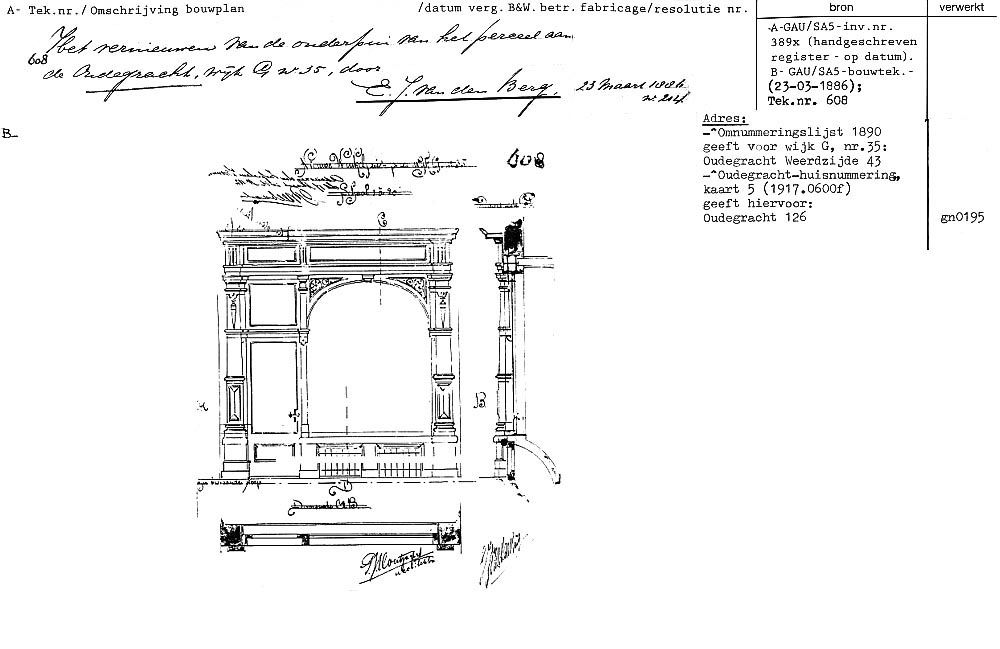 A- Tek.nr./ Omschrijving bouwplan /datum verg. B&W. betr. fabricage/resolutie nr. bron verwerkt
608 Het vernieuwen van de onderpui van het perceel aan
de Oudegracht, wijk G nº 35, door
E. J. van den Berg. 23 Maart 1886
nº 204
A-GAU/SA5-inv.nr.
389x (handgeschreven
register - op datum).
B- GAU/SA5-bouwtek.-
(23-03-1886);
Tek.nr. 608
Adres:
-^Omnummeringslijst 1890
geeft voor wijk G, nr.35:
Oudegracht Weerdzijde 43
-^Oudegracht-huisnummering,
kaart 5 (1917.0600f)
geeft hiervoor:
Oudegracht 126 gn0195
B-
608
Schaal 1 à 20
C
A
B
D
Doorsnede AB